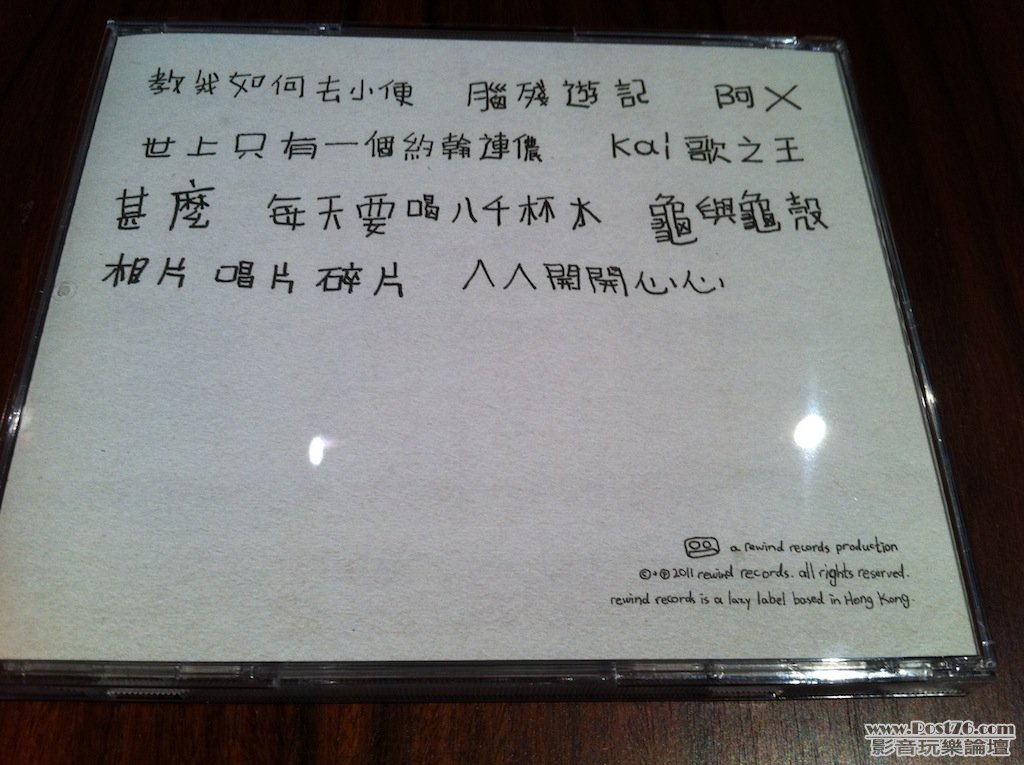 教我如何去小便 腦殘遊記 阿X
世上只有一個約翰連儂 Kal歌之王
甚麼 每天要喝八千杯水 龜與龜殼
相片唱片碎片 人人開開心心
a rewind records production
©+℗2011 rewind records. all rights reserved.
rewind records is a lazy label based in Hong Kong.
www.Post76.com
影音玩樂論壇